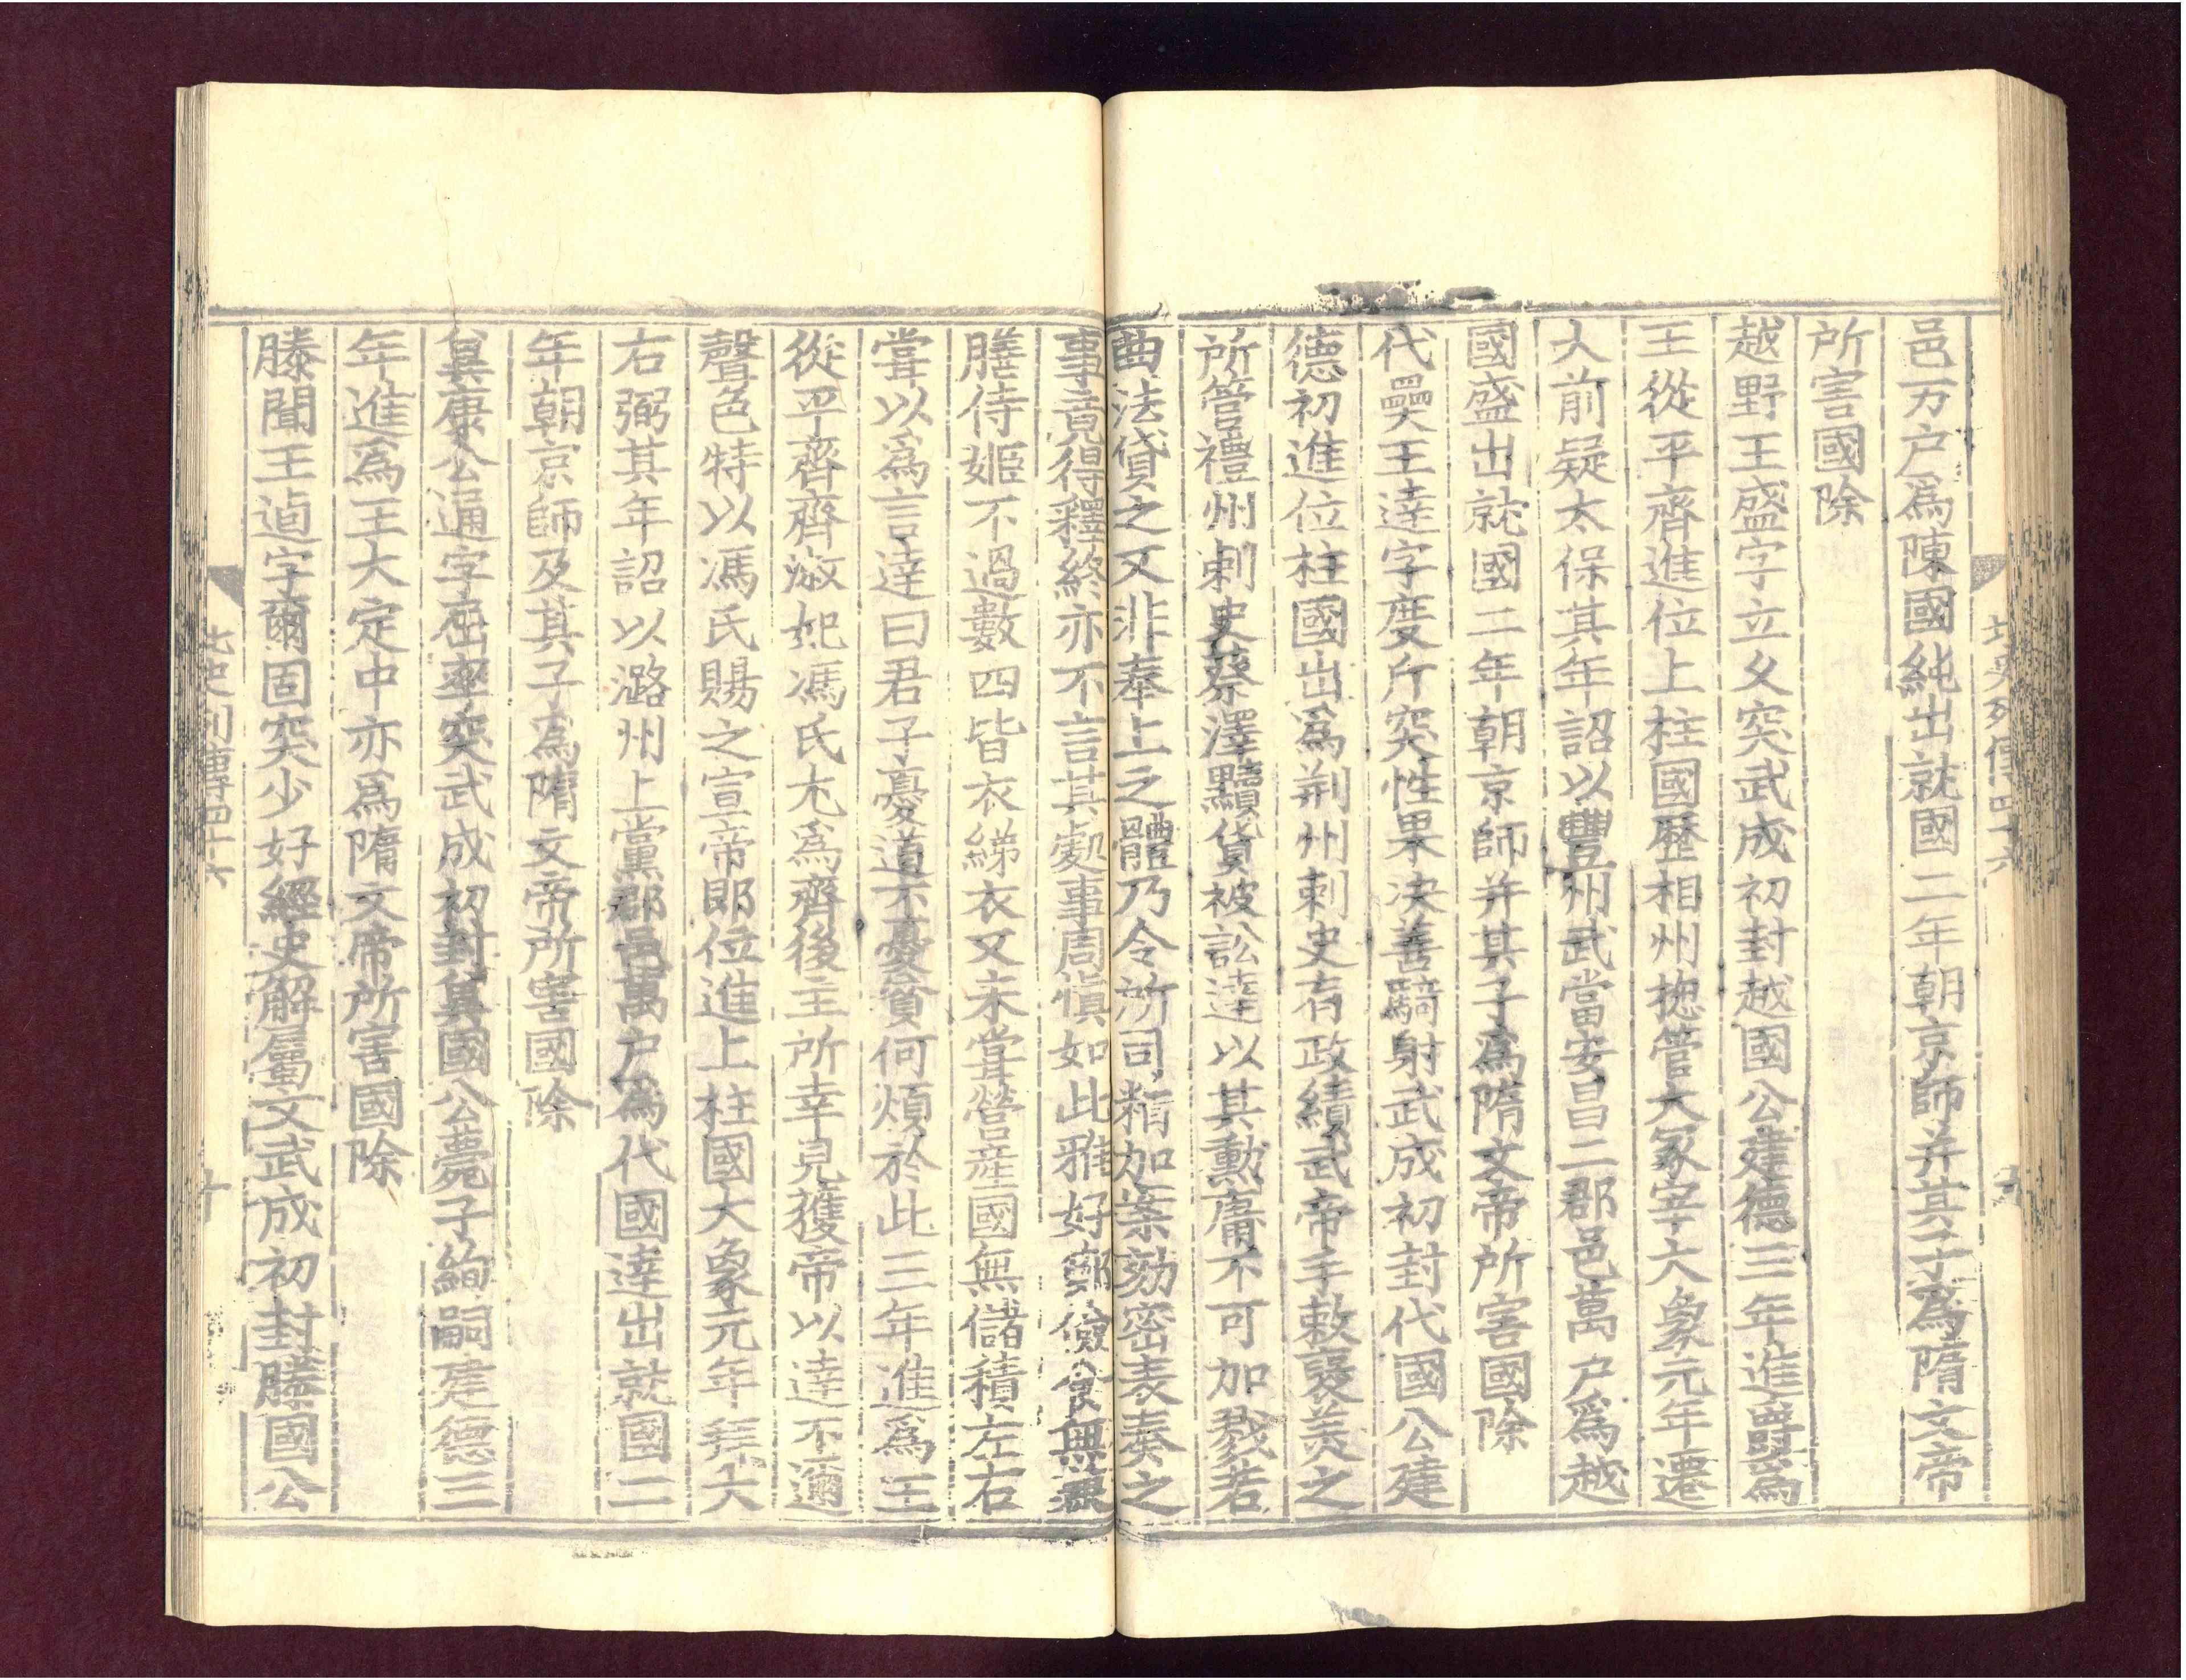 邑万户爲陳國純出就國二年朝京師并其子爲隋文帝
所害國除
越野王盛字立久突武成初封越國公建德三年進爵爲
王從平齊進位上柱國歷相州揔管大冢宰大象元年遷
大前疑太保其年詔以豐州武當安昌二郡邑萬户爲越
國盛出就國二年朝京師并其子爲隋文帝所害國除
代奰王達字度斤突性果决善騎射武成初封代國公建
德初進位柱國出爲荆州刺史有政績武帝手敕襃美之
所管禮州刺史蔡澤黷貨被訟達以其勲庸不可加戮若
曲法貸之又非奉上之體乃令所司精加案劾密表奏之
事竟得釋終亦不言其處事周慎如此雅好節儉食無兼
膳侍姬不過數四皆衣綈衣又未甞營産國無儲積左右
甞以爲言達曰君子憂道不憂貧何煩於此三年進爲王
從平齊齊淑妃馮氏尤爲齊後主所幸見獲帝以達不邇
聲色特以馮氏賜之宣帝即位進上柱國大象元年拜大
右弼其年詔以潞州上黨郡邑萬户爲代國達出就國二
年朝京師及其子爲隋文帝所害國除
兾康公通字屈率突武成初封兾國公薨子絢嗣建德三
年進爲王大定中亦爲隋文帝所害國除
滕聞王逌字爾固突少好經史解屬文武成初封滕國公
北史列傳四十六